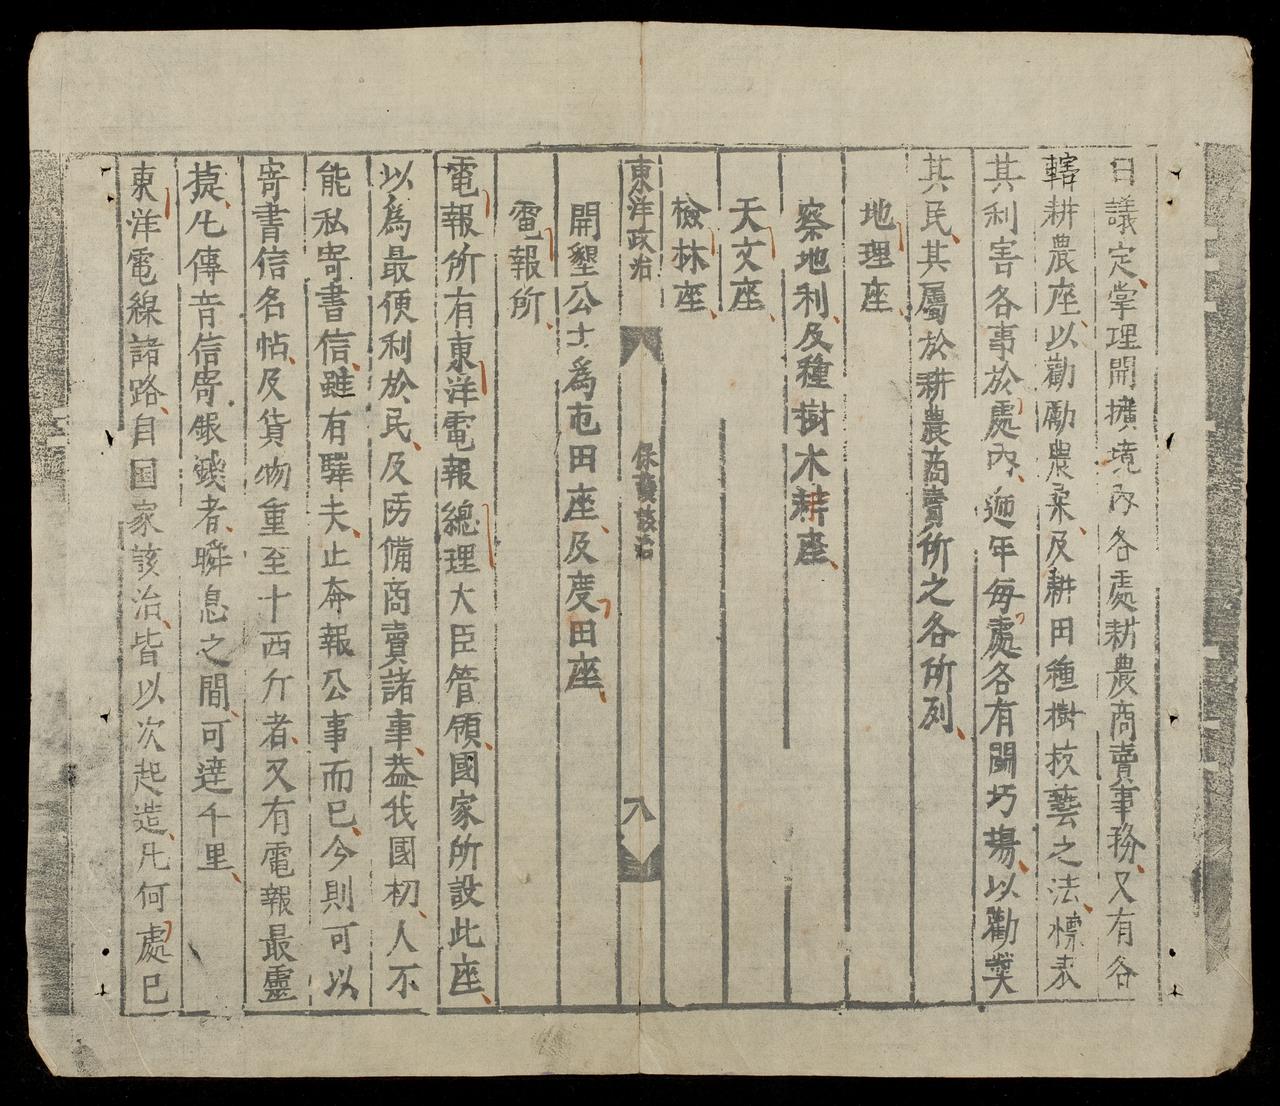 日議定掌理開擴境內各處耕農商賣事務又有各
轄耕農座以勸勵農桑及耕田種樹技藝之法標表
其利害各事於處內迊年每處各有閗巧塲以勸奬
其民其屬於耕農商賣所之各所列
地理座
察地利及種樹木耕座
天文座
檢林座
東洋政治 保護該治 八
開墾公士為屯田座及度田座
電報所
電報所有東洋電報總理大臣管領國家所設此座
以爲最便利於民及防備商賣諸事益我國初人不
能私寄書信雖有驛夫止奔報公事而已今則可以
寄書信名帖及貨物重至十西斤者又有電報最靈
捷凢傳音信寄銀錢者瞬息之間可達千里
東洋電線諸路自国家該治皆以次起造凢何處已